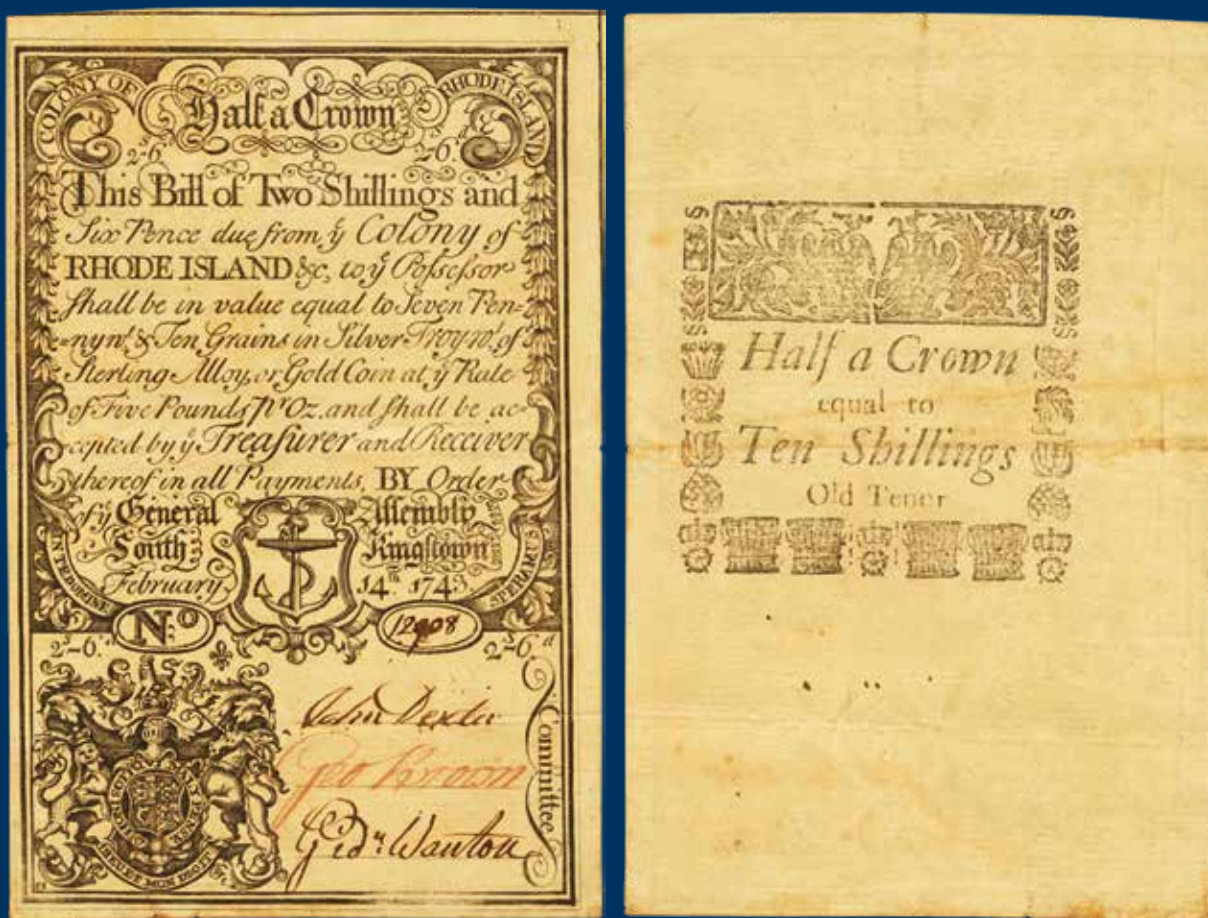 COLONY OF RHODE ISLAND
Half a Crown
2ˢ-6ᵈ 2ˢ-6ᵈ
This Bill of Two Shillings and
Six Pence due from yᵉ Colony of
RHODE ISLAND &c, to yᵉ Possessor
shall be in value equal to Seven Pen-
=nywᵗ & Ten Grains in Silver Troy wᵗ of
Sterling Alloy, or Gold Coin at yᵉ Rate
of Five Pounds pʳ Oz. and shall be ac-
cepted by yᵉ Treasurer and Receiver
thereof in all Payments. BY Order
of yᵉ General Assembly
South Kingstown
February 14ᵗʰ 1743
IN TE DOMINE SPERAMUS
Nº 12908
2ˢ-6ᵈ 2ˢ-6ᵈ
John Dexter
Geo Brown
Gidⁿ Wanton
Committee
HONI SOIT QUI MAL Y PENSE
DIEU ET MON DROIT
Half a Crown
equal to
Ten Shillings
Old Tenor